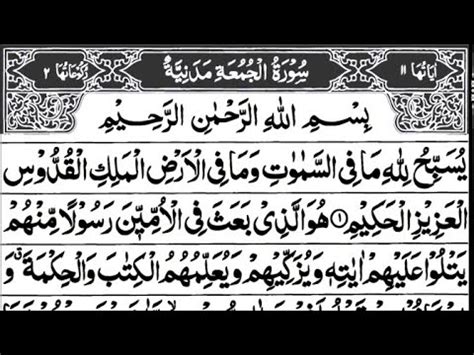 اٰيَاتُهَا ١١ سُوْرَةُ الْجُمُعَةِ مَدَنِيَّةٌ رُكُوْعَاتُهَا ٢
بِسْمِ اللهِ الرَّحْمٰنِ الرَّحِيْمِ
يُسَبِّحُ لِلّٰهِ مَا فِى السَّمٰوٰتِ وَمَا فِى الْاَرْضِ الْمَلِكِ الْقُدُّوْسِ
الْعَزِيْزِ الْحَكِيْمِ ۝١ هُوَ الَّذِىْ بَعَثَ فِى الْاُمِّيّٖنَ رَسُوْلًا مِّنْهُمْ
يَتْلُوْا عَلَيْهِمْ اٰيٰتِهٖ وَيُزَكِّيْهِمْ وَيُعَلِّمُهُمُ الْكِتٰبَ وَالْحِكْمَةَ ۗ